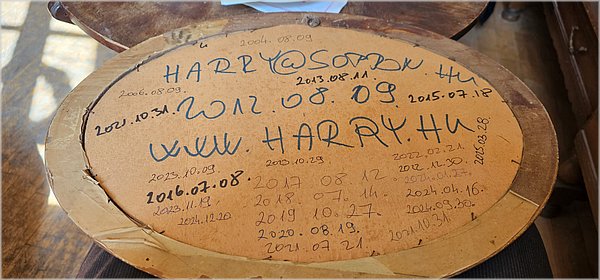 2004.08.09
HARRY@SOPRON.HU
2006.08.09. 2013.08.11.
2021.10.31. 2012.08.09 2015.07.18
WWW.HARRY.HU
2023.10.09. 2013.10.29 2022.02.21. 2025.03.28.
2016.07.08. 2017 08 12. 2012.12.30.
2023.11.19 2018 07. 14. 2024.04.16.
2024.12.20 2019 10.27. 2024.09.30.
2020.08.19. 2021.10.31.
2021.07 21.